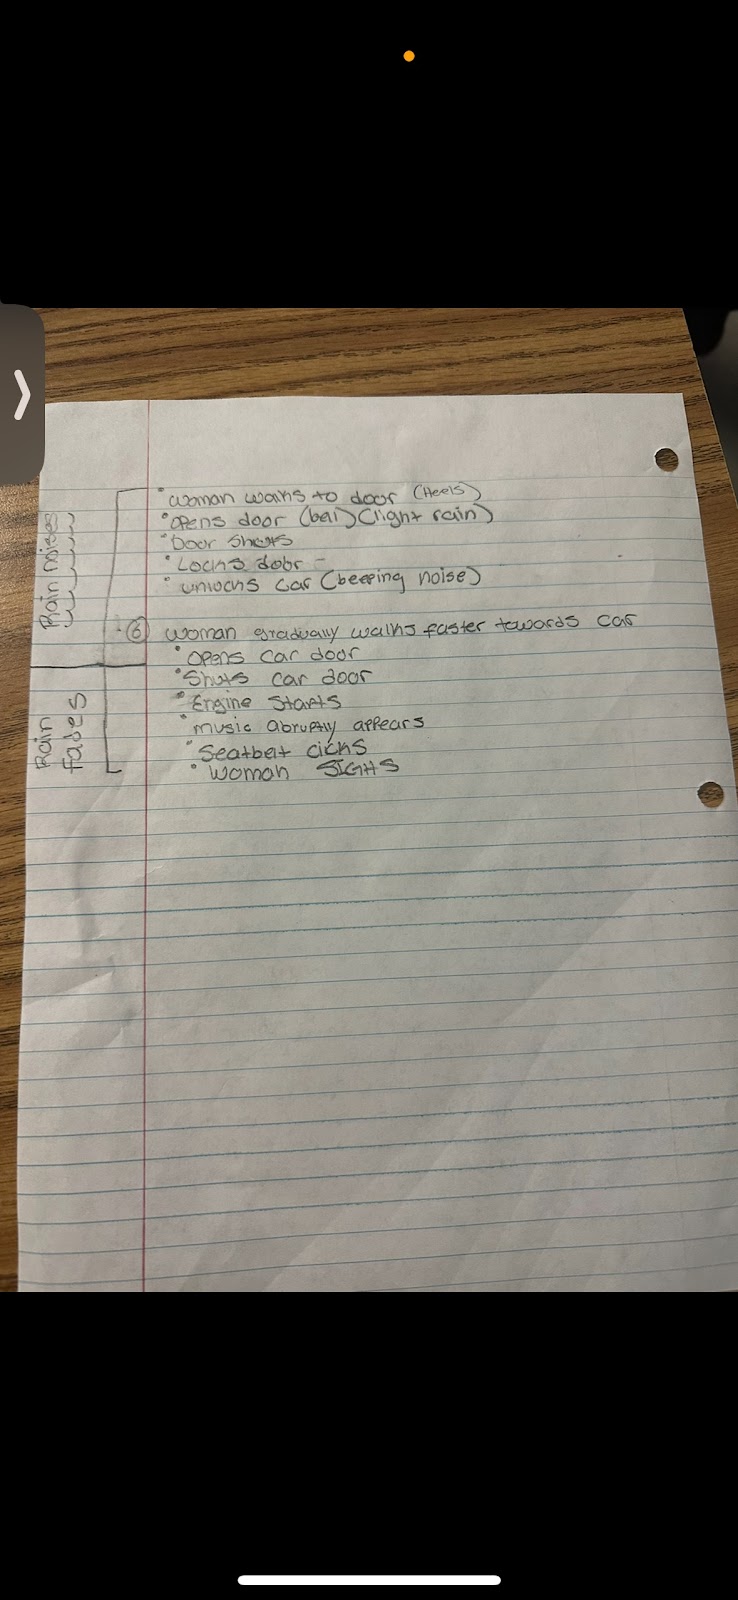 Rain noises
• woman walks to door (Heels)
• opens door (bell) (light rain)
• Door Shuts
• Locks door -
• unlocks car (beeping noise)
⑥ woman gradually walks faster towards car
• opens car door
• Shuts car door
• Engine Starts
• music abruptly appears
• Seatbelt clicks
• woman SIGHS
Rain
Fades